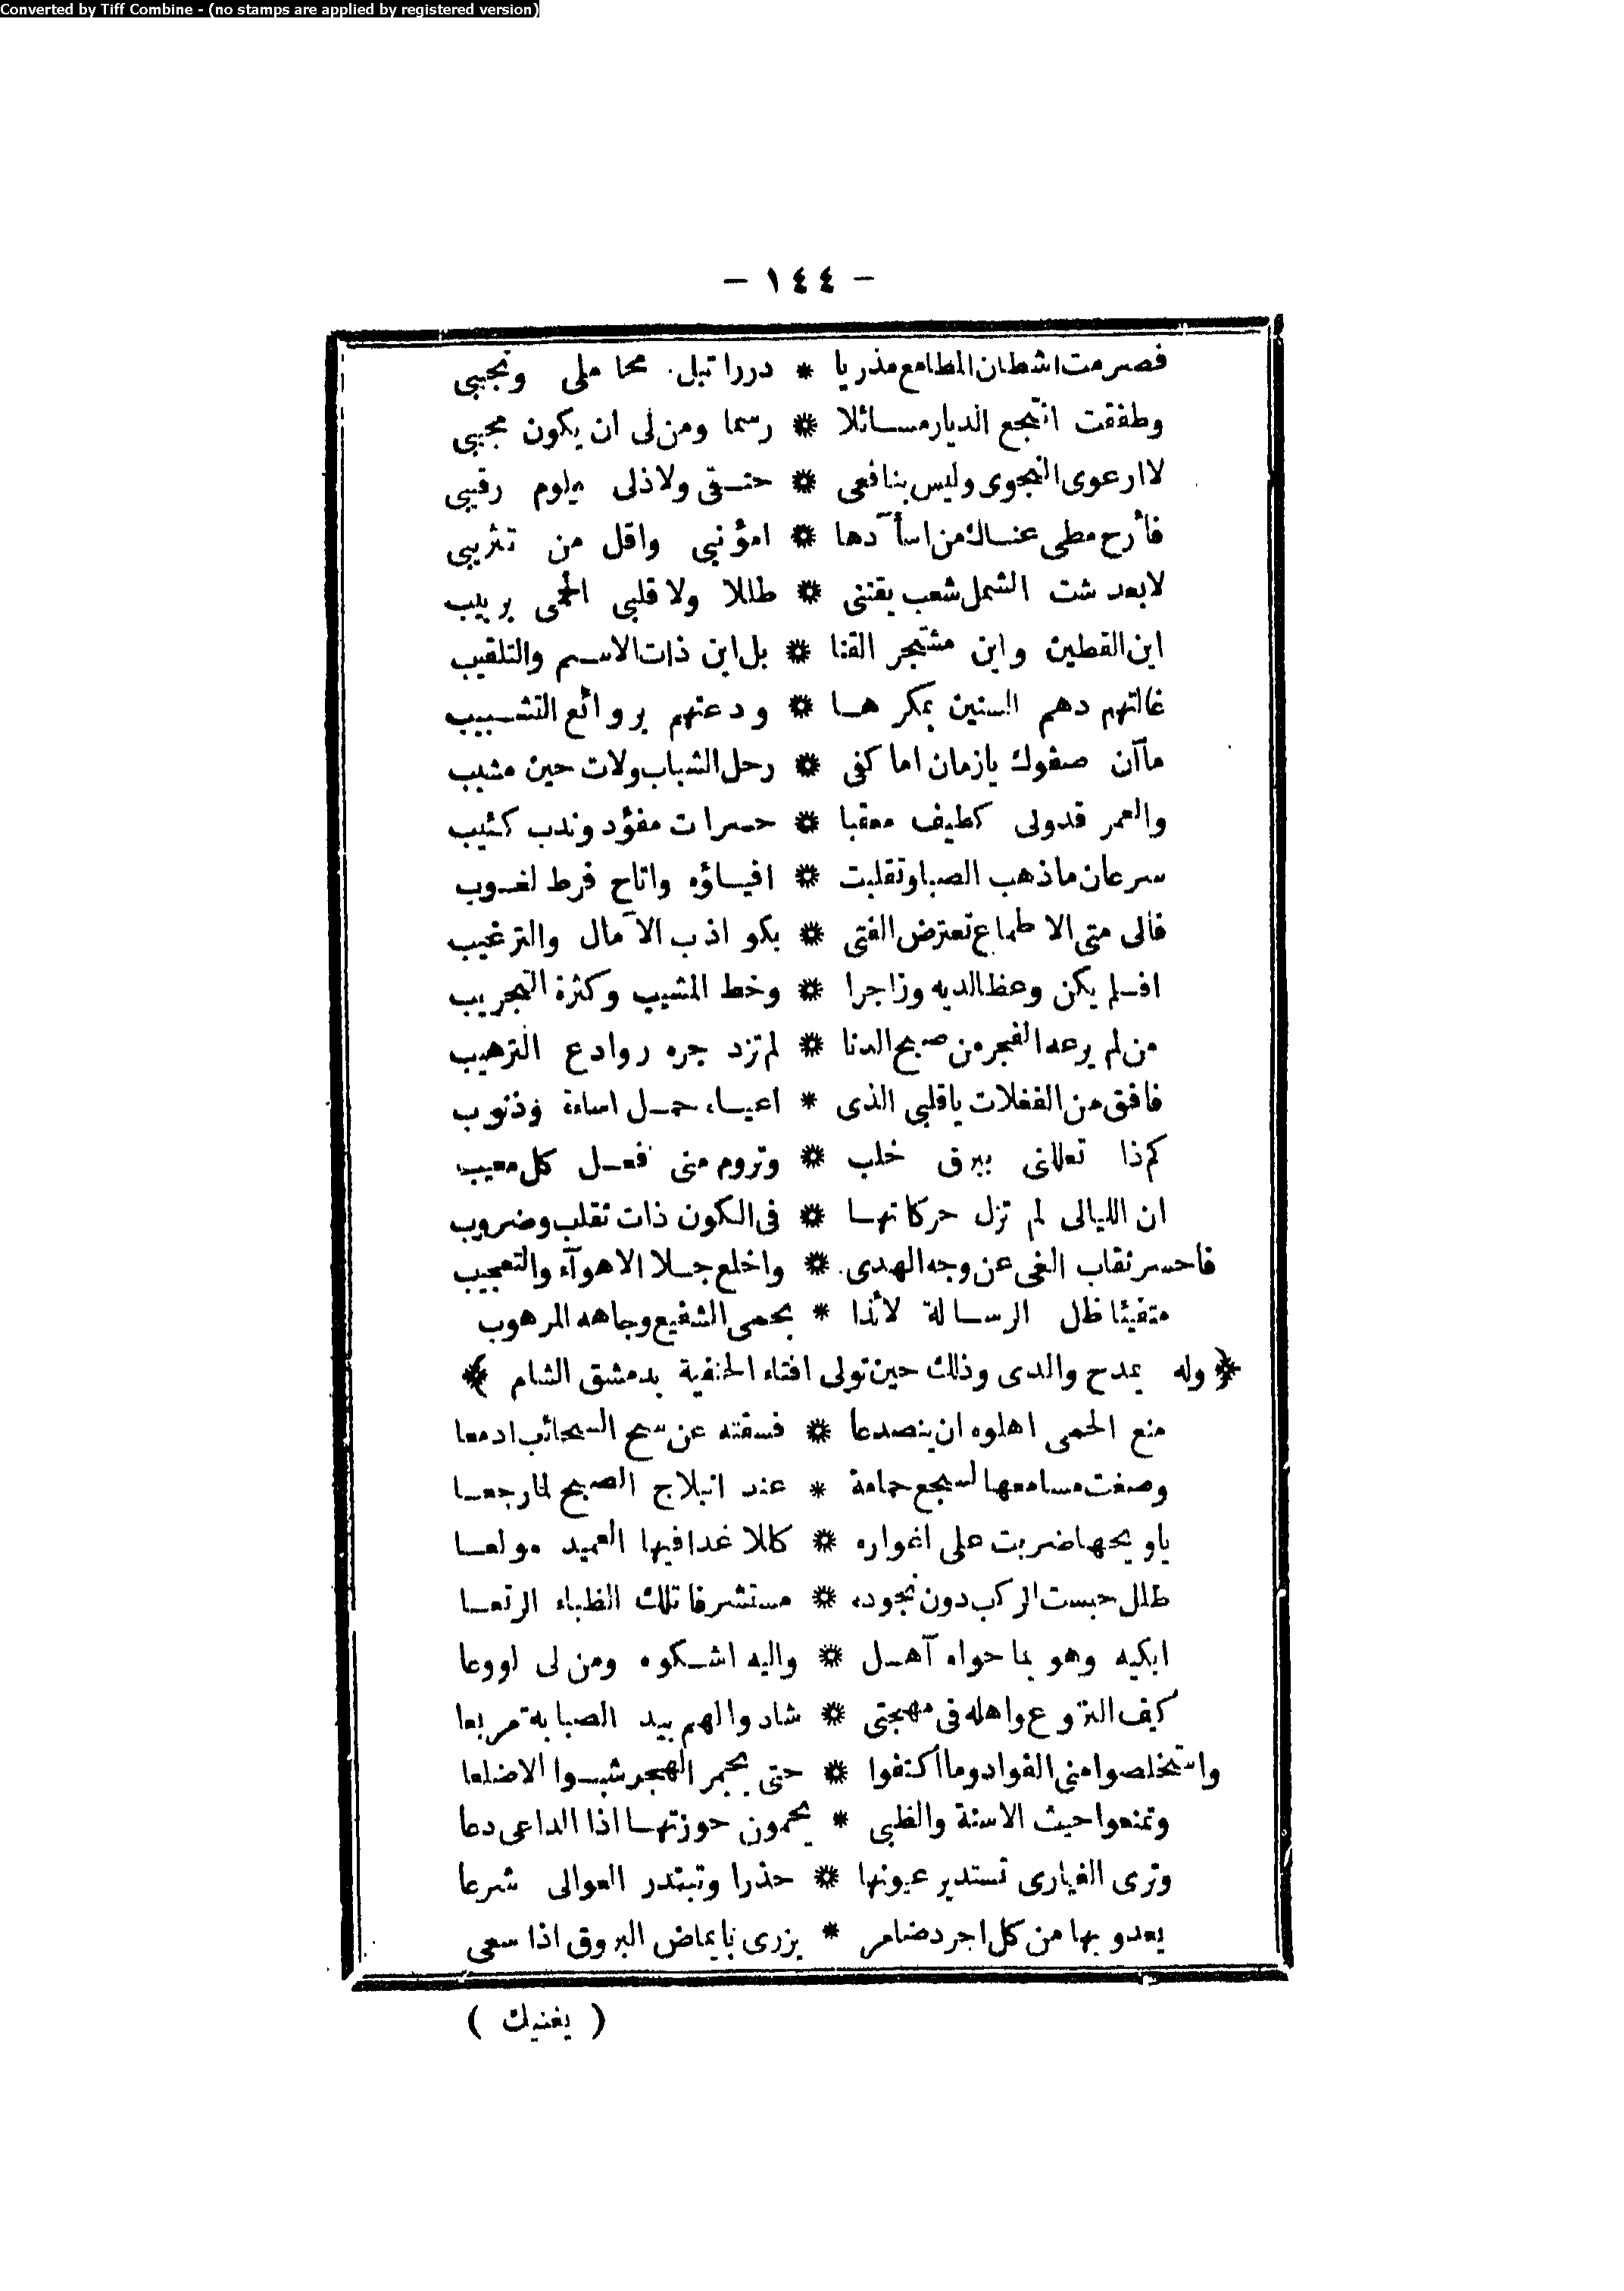 Converted by Tiff Combine - (no stamps are applied by registered version)
- ١٤٤ -
فصرمت اشطان المطامع مذريا * دررا تبل محاملى ونجيبى
وطفقت انتجع الديار مسائلا * رسما ومن لى ان يكون مجيبى
لا ارعوى النجوى وليس بنافعى * حنقى ولا ذلى يلوم رقيبى
فأرح مطى عنالك من اسآدها * امؤنبى واقل من تثريبى
لا بعد شت الشمل شعب يقتنى * طللا ولا قلبى الحمى بربيب
اين القطين واين مشتجر القنا * بل اين ذات الاسم والتلقيب
غالتهم دهم السنين بمكرها * ودعتهم بروائع التشبيب
ماآن صفوك يازمان اما كفى * رحل الشباب ولات حين مشيب
والعمر قدولى كطيف معقبا * حسرات مفؤد وندب كئيب
سرعان ماذهب الصبا وتقلبت * افياؤه واتاح فرط لغوب
فالى متى الاطماع تعترض الفتى * بكواذب الآمال والترغيب
افلم يكن وعظا لديه وزاجرا * وخط المشيب وكثرة التجريب
من لم يرعه الفجر من صبح الدنا * لم تزدجره روادع الترهيب
فافق من الغفلات ياقلبى الذى * اعياه حمل اساءة وذنوب
كم ذا تعللنى ببرق خلب * وتروم منى فعل كل معيب
ان الليالى لم تزل حركاتها * فى الكون ذات تقلب وضروب
فاحسر نقاب الغى عن وجه الهدى * واخلع جلا الاهوآء والتعجيب
متفيئا ظل الرسالة لائذا * بحمى الشفيع وجاهه المرهوب
﴿ وله يمدح والدى وذلك حين تولى افتاء الحنفية بدمشق الشام ﴾
منع الحمى اهلوه ان يتصدعا * فسقته عن سح السحائب ادمعا
وصغت مسامعها لسجع حمامة * عند انبلاج الصبح لما رجعا
ياويحها ضربت على اغواره * كللا غدا فيها العميد مولعا
طلل حبست الركب دون نجوده * مستشرفا تلك الظباء الرتعا
ابكيه وهو بما حواه آهل * واليه اشكوه ومن لى لو وعا
كيف النزوع واهله فى مهجتى * شادوا لهم بيد الصبابة مربعا
واستخلصوا منى الفواد وما أكتفوا * حتى بجمر الهجر شبوا الاضلعا
وتمنعوا حيث الاسنة والظبى * يحمون حوزتها اذا الداعى دعا
وترى الغيارى تستدير عيونها * حذرا وتبتدر العوالى شرعا
يعدو بها من كل اجرد ضامر * يزرى بايماض البروق اذا سعى
( يغنيك )